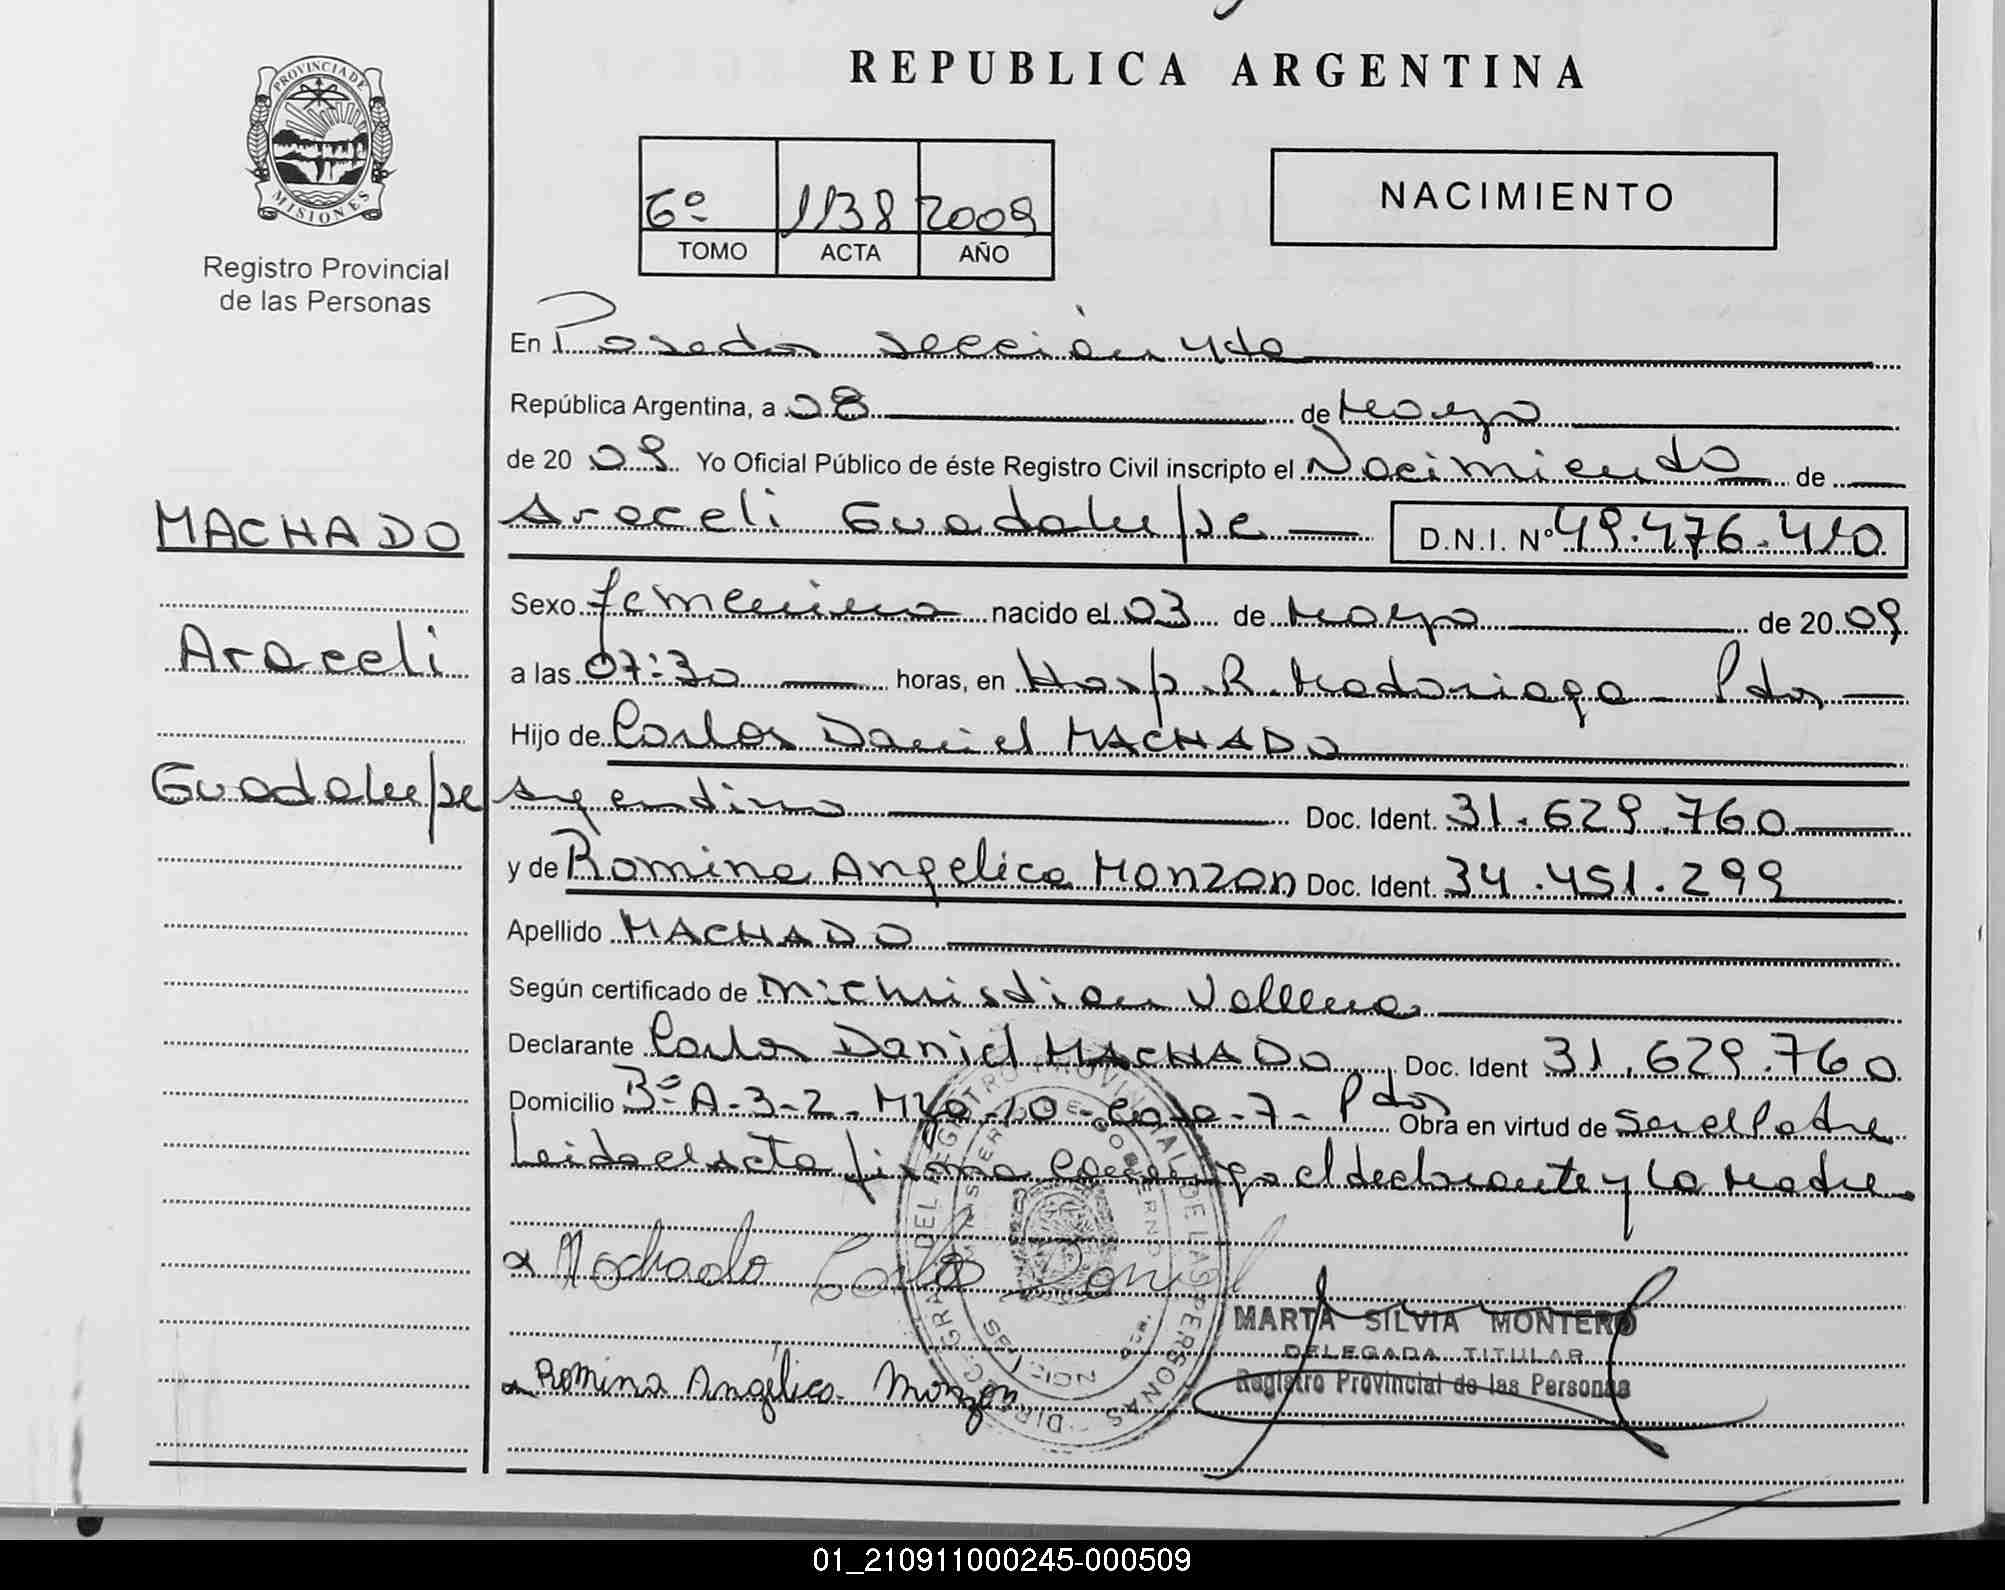 REPUBLICA ARGENTINA
PROVINCIA DE
MISIONES
Registro Provincial
de las Personas
6º 1138 2009
TOMO ACTA AÑO
NACIMIENTO
En Posadas sección 4ta
República Argentina, a 08 de Mayo
de 20 09 Yo Oficial Público de éste Registro Civil inscripto el Nacimiento de
MACHADO
Araceli
Guadalupe
Araceli Guadalupe D.N.I. Nº 49.476.410
Sexo femenino nacido el 03 de Mayo de 20 09
a las 07:30 horas, en Hosp. R. Madariaga - Pdas
Hijo de Carlos Daniel MACHADO
Argentino Doc. Ident. 31.629.760
y de Romina Angelica Monzon Doc. Ident. 34.451.299
Apellido MACHADO
Según certificado de
Declarante Carlos Daniel MACHADO Doc. Ident 31.629.760
Domicilio Bº A-3-2- Mza-10-Casa-7- Pdas Obra en virtud de ser el Padre
Leida el acta firma conmigo el declarante y la Madre
Machado Carlos Daniel
MARTA SILVIA MONTERO
DELEGADA TITULAR
Registro Provincial de las Personas
Romina Angélica Monzon
01_210911000245-000509